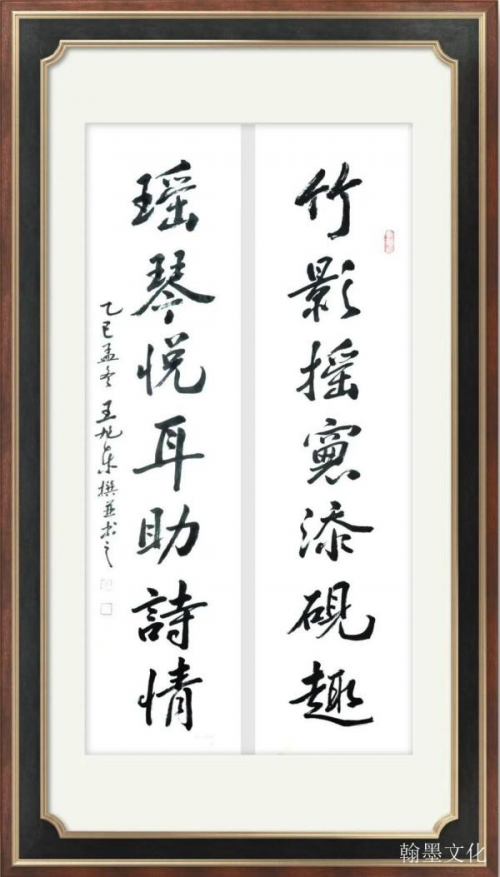 竹影摇窻添砚趣
瑶琴悦耳助詩情
乙巳孟冬 王旭东撰並书之
翰墨文化